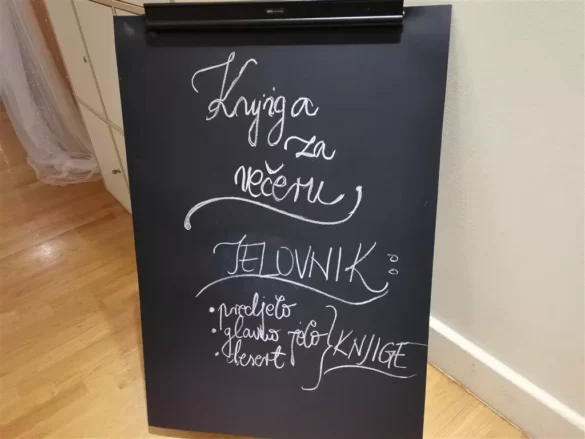 Knjiga
za
večeru
JELOVNIK:
• predjelo
• glavno jelo
• desert
KNJIGE